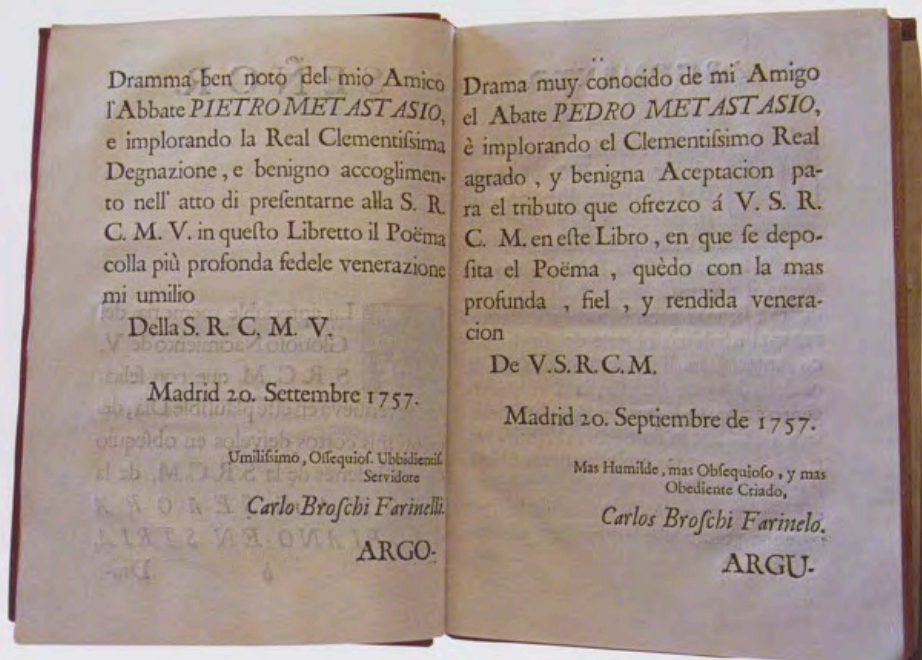 Dramma ben noto del mio Amico
l'Abbate PIETRO METASTASIO,
e implorando la Real Clementiſsima
Degnazione, e benigno accoglimen-
to nell' atto di preſentarne alla S. R.
C. M. V. in queſto Libretto il Poëma
colla più profonda fedele venerazione
mi umilio
Della S. R. C. M. V.
Madrid 20. Settembre 1757.
Umiliſsimo, Oſſequioſ. Ubbidientiſ.
Servidore
Carlo Broſchi Farinelli.
ARGO-
Drama muy conocido de mi Amigo
el Abate PEDRO METASTASIO,
è implorando el Clementiſsimo Real
agrado, y benigna Aceptacion pa-
ra el tributo que ofrezco á V. S. R.
C. M. en eſte Libro, en que ſe depo-
ſita el Poëma, quèdo con la mas
profunda, fiel, y rendida venera-
cion
De V.S.R.C.M.
Madrid 20. Septiembre de 1757.
Mas Humilde, mas Obſequioſo, y mas
Obediente Criado,
Carlos Broſchi Farinelo.
ARGU-